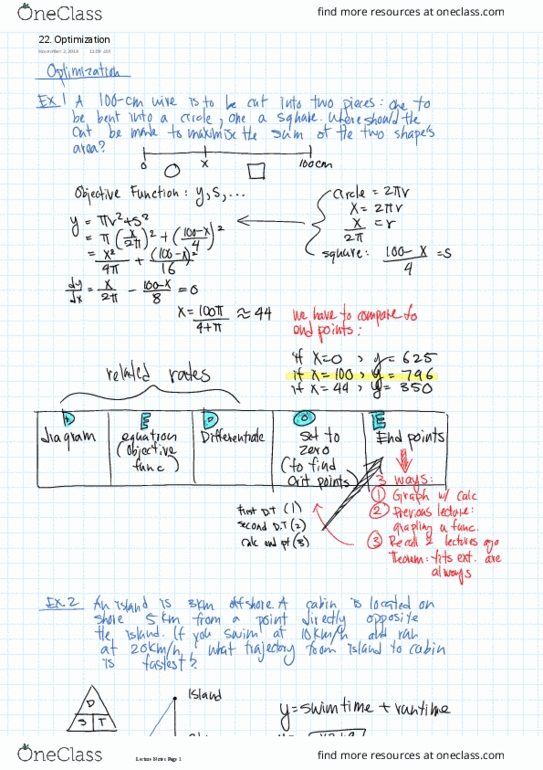 OneClass
find more resources at oneclass.com
22. Optimization
November 3, 2014
Optimization
Ex. 1 A 100-cm wire is to be cut into two pieces: one to
be bent into a circle, one a square. Where should the
cut be made to maximise the sum of the two shape's
area?
0 x 100cm
Objective Function: y, s, ...
circle = 2πr
x = 2πr
x/2π = r
square: (100-x)/4 = s
y = πr² + s²
= π(x/2π)² + ((100-x)/4)²
= x²/4π + (100-x)²/16
dy/dx = x/2π - (100-x)/8 = 0
x = 100π/(4+π) ≈ 44
we have to compare to
end points:
if x=0, y = 625
if x = 100, y = 796
if x = 44, y = 350
related rates
D E D 0 E
diagram
equation
(objective
func)
Differentiate
set to
zero
(to find
crit points)
End points
3 ways:
① Graph w/ calc
② Previous lecture:
graphing a func.
③ Recall 2 lectures ago
theorem: exts. are
always
first D.T (1)
second D.T (2)
calc end pt (3)
Ex. 2 An island is 3km offshore. A cabin is located on
shore 5km from a point directly opposite
the island. If you swim at 10km/h and run
at 20km/h, what trajectory from island to cabin
is fastest?
D
S T
Island
y = swimtime + runtime
Lecture Notes Page 1
OneClass
find more resources at oneclass.com